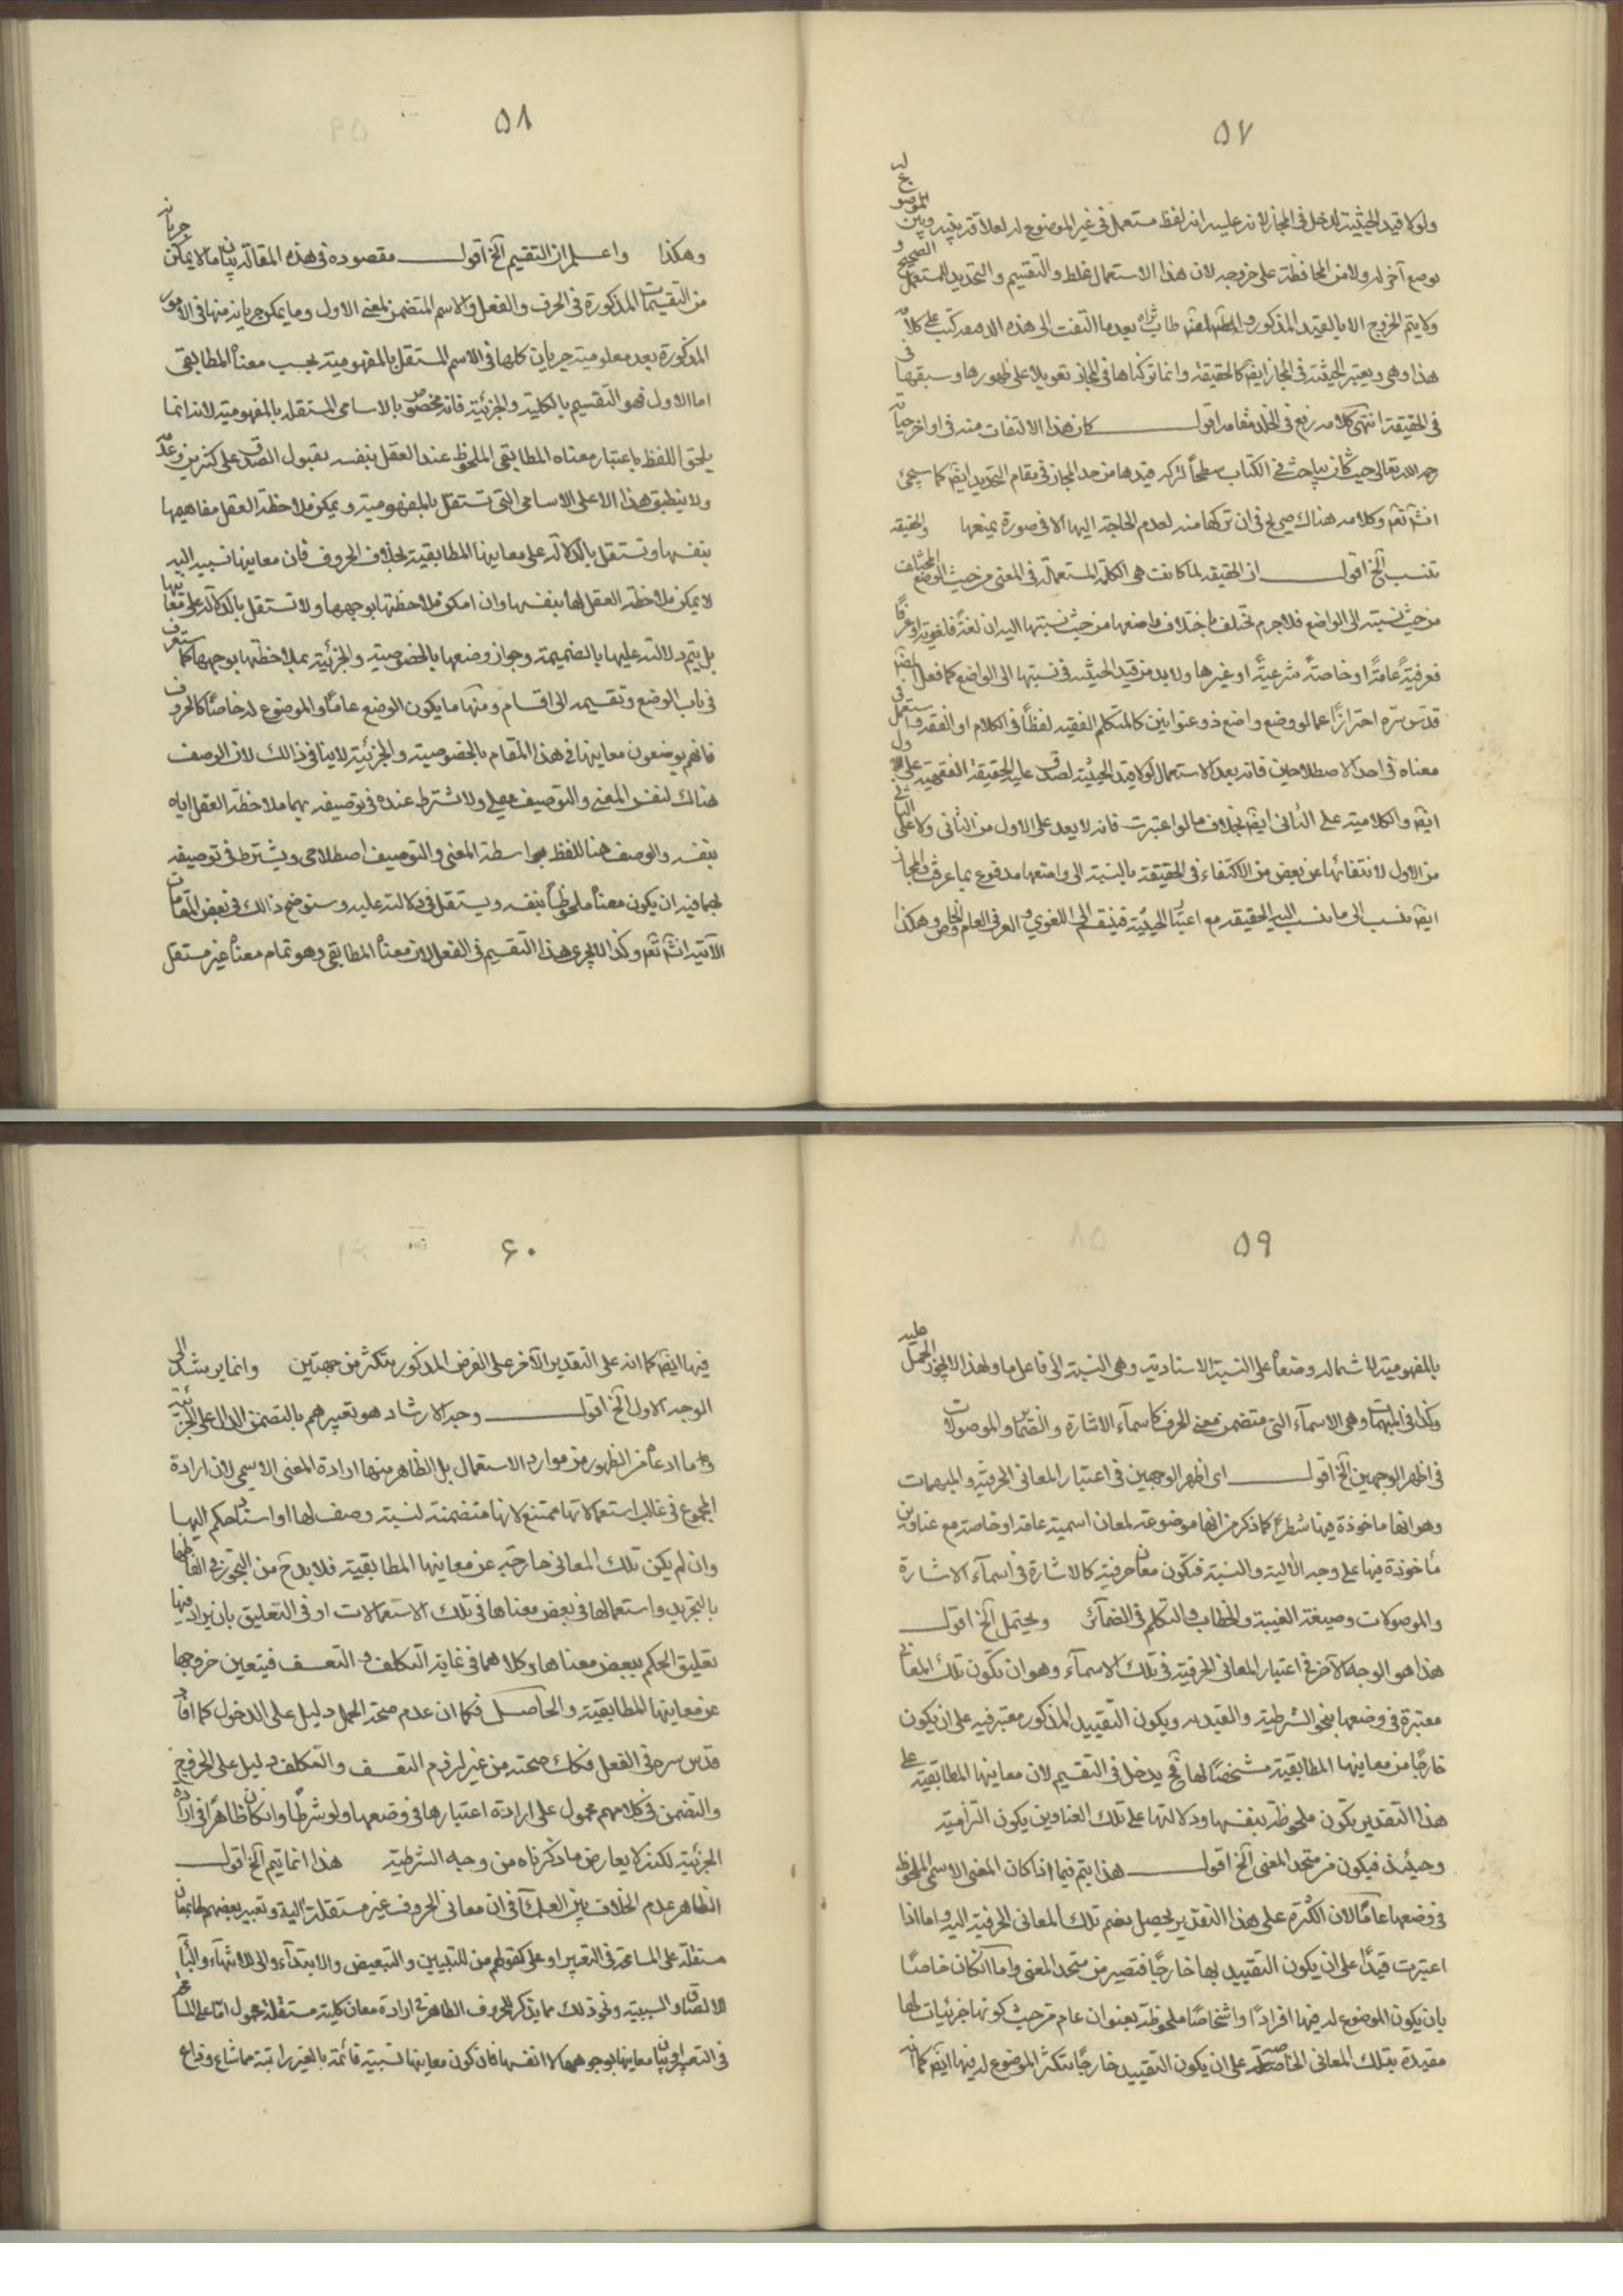 ٥٧
ولولا قيد الحيثية لدخل في المجاز لانه عليه انه لفظ مستعمل في غير الموضوع له لعلاقة بينه وبين الموضوع له
بوضع آخر له ولا من المحافظة على خروجه لان هذا الاستعمال غلط والتقسيم والتحديد للمستعمل الصحيح
ولا يتم الخروج الا بالقيد المذكور طاب ثراه بعد ما التفت الى هذه كتب على
هذا وهي ويعتبر الحيثية في المجاز ايضا كالحقيقة وانما تركناها في المجاز تعويلا على ظهورها وسبقها
في الحقيقة انتهى كلامه رفع في الخلد مقامه اقول كان هذا الالتفات منه في اواخر
الله تعالى حيث كان يباحث في الكتاب لتركه قيدها من حد المجاز في مقام التحديد ايضا كما سيجئ
انشا تعالى وكلامه هناك صريح في ان تركها منه لعدم الحاجة اليها الا في صورة يمنعها والحقيقة
تنسب الخ اقول ان الحقيقة لما كانت هي الكلمة المستعملة في المعنى من حيث الوضع المختلف
من حيث نسبته الى الواضع فلا جرم تختلف باختلاف واضعها من حيث نسبتها اليه ان لغة فلغوية او عرفا
فعرفية عامة او خاصة شرعية او غيرها ولا بد من قيد الحيثية في نسبتها الى الواضع كما فعل
قدس سره احترازا عما لو وضع واضع ذو عنوانين كالمتكلم الفقيه لفظا في الكلام او الفقه واستعمل في
معناه في احد الاصطلاحين فانه بعد الاستعمال لولا قيد الحيثية لصدق عليه الحقيقة الفقهية على الاول
ايضا والكلامية على الثاني ايضا بخلاف ما لو اعتبرت فانه لا يعد على الاول من الثاني ولا على الثاني
من الاول لانتفائها عن بعض من الاكتفاء في الحقيقة بالنسبة الى واضعها مدفوع بما عرفت والمجاز
ايضا ينسب الى ما ينسب اليه الحقيقة مع اعتبار الحيثية فينقسم الى اللغوي والعرفي العام والخاص وهكذا
٥٨
وهكذا واعلم ان التقسيم الخ اقول مقصوده في هذه المقالة بيان ما لا يمكن جريانه
من التقسيمات المذكورة في الحرف والفعل والاسم المتضمن لمعنى الاول وما يمكن جريانه منها في الامور
المذكورة بعد معلومية جريان كلها في الاسم المستقل بالمفهومية بحسب معناه المطابقي
اما الاول فهو التقسيم بالكلية والجزئية فانه مخصوص بالاسامي المستقلة بالمفهومية لانه انما
يلحق اللفظ باعتبار معناه المطابقي الملحوظ عند العقل بنفسه بقبول الصدق على كثيرين وعدمه
ولا ينطبق هذا الا على الاسامي التي تستقل بالمفهومية ويمكن ملاحظة العقل مفاهيمها
بنفسها وتستقل بالدلالة على معانيها المطابقية بخلاف الحروف فان معانيها نسبية آلية
لا يمكن ملاحظة العقل لها بنفسها وان امكن ملاحظتها بوجهها ولا تستقل بالدلالة على معانيها
بل يتم دلالته عليها بالضميمة وجواز وضعها بالخصوصية والجزئية بملاحظتها بوجهها كما ستعرف
في باب الوضع وتقسيمه الى اقسام ومنها ما يكون الوضع عاما والموضوع له خاصا كالحروف
فانهم يوضعون معانيها في هذا المقام بالخصوصية والجزئية لا ينافي ذالك لان الوصف
هناك لنفس المعنى والتوصيف ولا اشتراط عنده في توصيفه بهما ملاحظة العقل اياه
بنفسه والوصف هنا للفظ بواسطة المعنى والتوصيف اصطلاحي ويشترط في توصيفه
بهما فيه ان يكون معناه ملحوظا بنفسه ويستقل في دلالته عليه وستوضح ذالك في بعض المقامات
الآتية انشا تعالى وكذا لا يجري هذا التقسيم في الفعل لان معناه المطابقي وهو تمام معناه غير مستقل
٥٩
بالمفهومية لاشتماله وضعا على النسبة الاسنادية وهي النسبة الى فاعل ما ولهذا لا يجوز الحمل عليه
وكذا في المبهمات وهي الاسماء التي متضمن معنى الحرف كاسماء الاشارة والضمائر والموصولات
في اظهر الوجهين الخ اقول اى اظهر الوجهين في اعتبار المعاني الحرفية والمبهمات
وهو انها ماخوذة فيها شطرا كما ذكر من انها موضوعة لمعان اسمية عامة او خاصة مع عناوين
مأخوذة فيها على وجه الآلية والنسبة فتكون معان حرفية كالاشارة في اسماء الاشارة
والموصولات وصيغة الغيبة والخطاب والتكلم في الضمائر ويحتمل الخ اقول
هذا هو الوجه الآخر في اعتبار المعاني الحرفية في تلك الاسماء وهو ان تكون تلك المعاني
معتبرة في وضعها بنحو الشرطية والقيدية ويكون التقييد المذكور معتبر فيه على ان يكون
خارجا من معانيها المطابقية مشخصا لها فح يدخل في التقسيم لان معانيها المطابقية على
هذا التقدير يكون ملحوظة بنفسها ودلالتها على تلك العناوين يكون التزامية
وحينئذ فيكون من متحد المعنى الخ اقول هذا يتم فيما اذا كان المعنى الاسمي الملحوظ
في وضعها عاما لان الكثرة على هذا التقدير لحصل بضم تلك المعاني الحرفية اليه واما اذا
اعتبرت قيدا على ان يكون التقييد بها خارجا فتصير من متحد المعنى واما ان كان خاصا
بان يكون الموضوع له فيها افرادا واشخاصا ملحوظة بعنوان عام من حيث كونها جزئيات لها
مقيدة بتلك المعاني الخاصة على ان يكون التقييد خارجا يتكثر الموضوع له فيها ايضا كما انه
٦٠
فيها ايضا كما انه على التقدير الآخر على الفرض المذكور يتكثر من جهتين وانما يرشد الى
الوجه الاول الخ اقول وجه الارشاد هو تعبيرهم بالتضمن الدال على الجزئية
وما ادعاه من الظهور من موارد الاستعمال بل الظاهر منها ارادة المعنى الاسمي لان ارادة
المجموع في غالب استعمالاتها ممتنع لانها متضمنة لنسبة وصف لها او اسناد حكم اليها
وان لم يكن تلك المعاني خارجة عن معانيها المطابقية فلا بد ح من التجوز في الفاظها
بالتجريد واستعمالها في بعض معناها في تلك الاستعمالات او في التعليق بان يراد فيها
تعليق الحكم ببعض معناها وكلاهما في غاية التكلف والتعسف فيتعين خروجها
عن معانيها المطابقية والحاصل فكما ان عدم صحة الحمل دليل على الدخول كما افاد
قدس سره في الفعل فكك صحته من غير لزوم التعسف والتكلف دليل على الخروج
والتضمن في كلامهم محمول على ارادة اعتبارها في وضعها ولو شرطا وان كان ظاهرا في ارادة
الجزئية لكنه لا يعارض ما ذكرناه من وجه الشرطية هذا انما يتم الخ اقول
الظاهر عدم الخلاف بين العلماء في ان معاني الحروف غير مستقلة آلية وتعبير بعضهم لها بمعان
مستقلة على المسامحة في التعبير او على كقولهم من للتبيين والتبعيض والابتداء والى للانتهاء والباء
للالصاق والسببية ونحو ذلك مما يذكر للحروف الظاهرة في ارادة معان كلية مستقلة محمول اما على المسامحة
في التعبير او بيان معانيها بوجوهها لا انفسها فان كون معانيها نسبية قائمة بالغير مما شاع وذاع